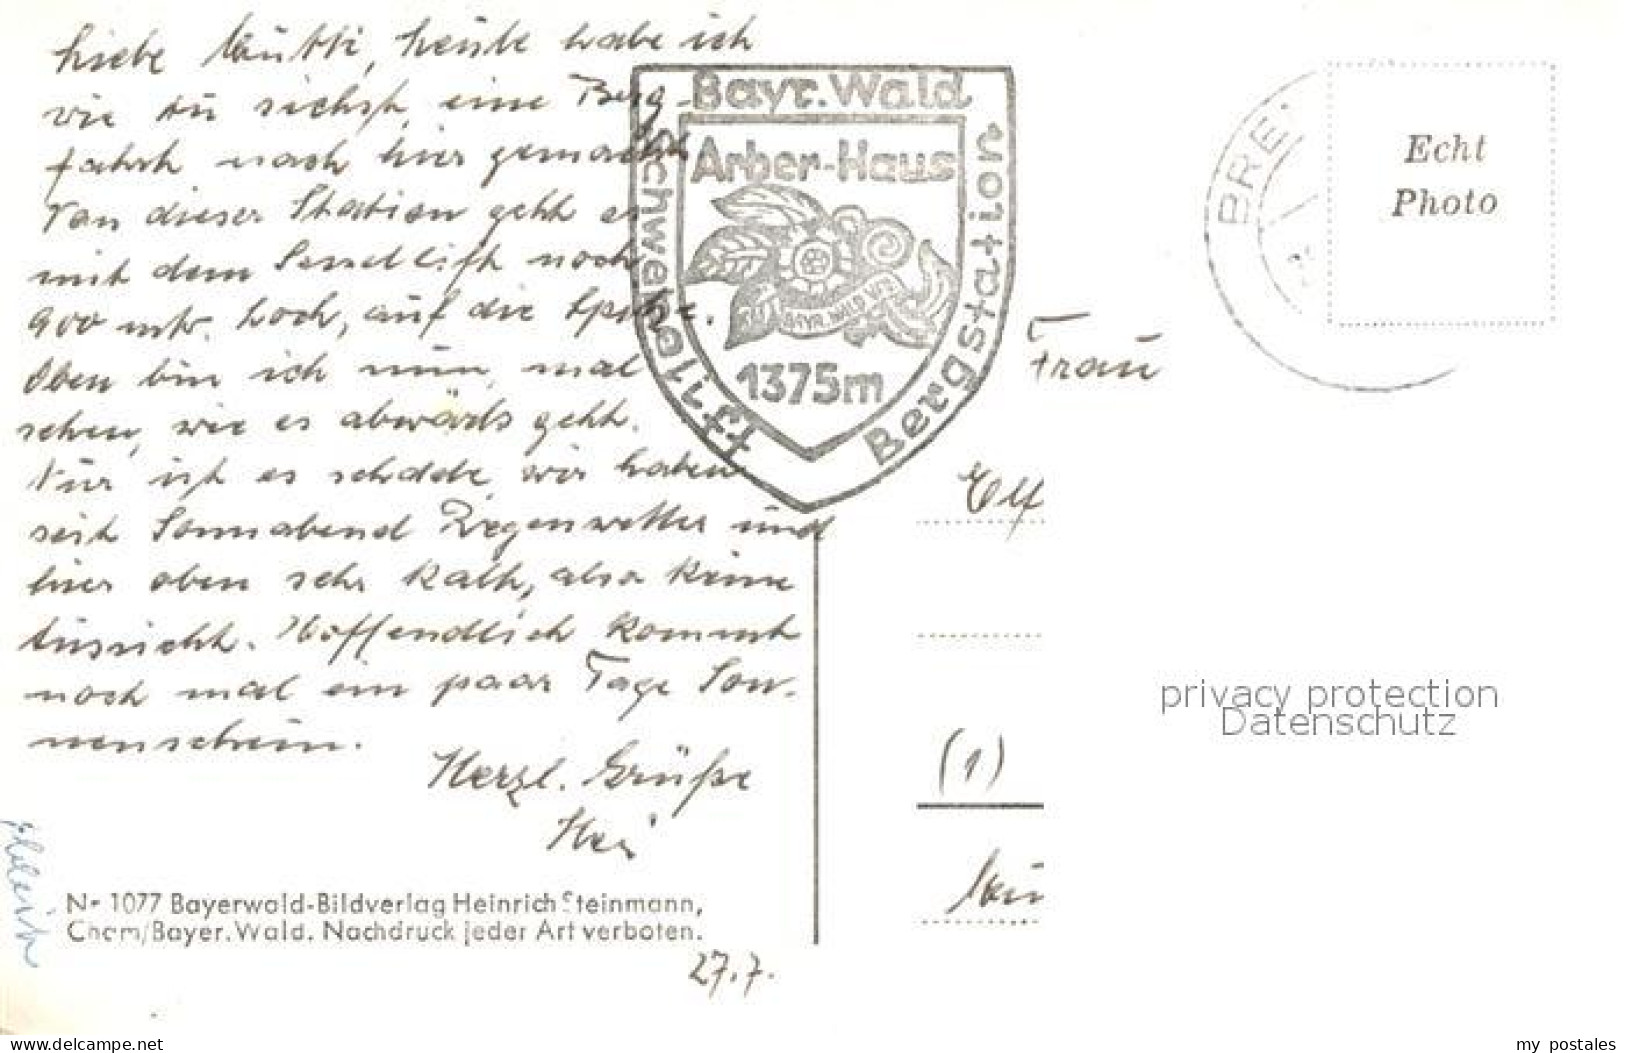 Liebe Mutti, heute habe ich
wie Du siehst, eine Berg-
fahrt nach hier gemacht.
Von dieser Station geht es
mit dem Sessellift noch
900 mtr. hoch, auf die Spitze.
Oben bin ich nun, mal
sehen, wie es abwärts geht.
Nur ist es schade, wir haben
seit Sonnabend Regenwetter und
hier oben sehr kalt, also keine
Aussicht. Hoffendlich kommt
noch mal ein paar Tage Son-
nenschein.
Herzl. Grüße
Hei
27.7.
Nr 1077 Bayerwald-Bildverlag Heinrich Steinmann,
Cham/Bayer.Wald. Nachdruck jeder Art verboten.
Bayr. Wald
Schwebelift
Bergstation
Arber-Haus
BAYR. WALD
1375m
BRE
Echt
Photo
Frau
Elf
(1)
privacy protection
Datenschutz
oldthing.de
my_postales